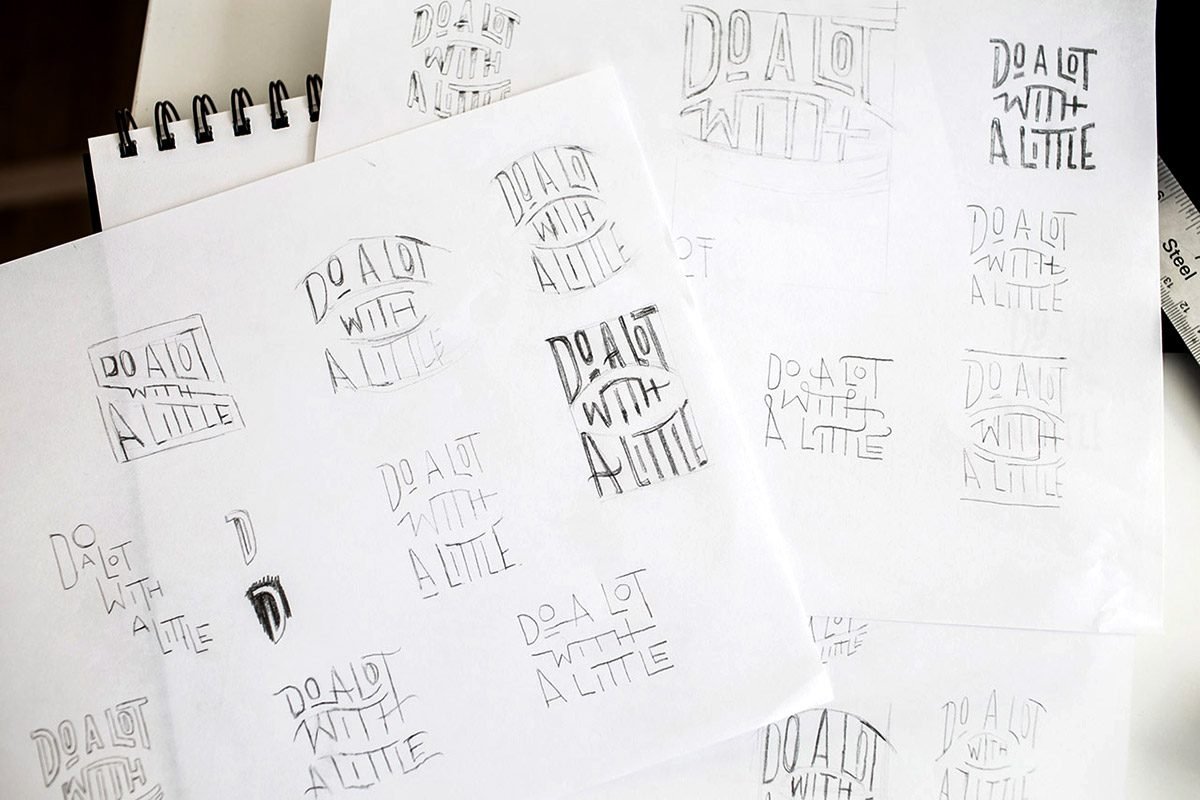 DO A LOT
WITH
A LITTLE
DO A LOT
WITH
DO A LOT
WITH
A LITTLE
DO A LOT
WITH
A LITTLE
DO A LOT
WITH
A LITTLE
DO A LOT
WITH
A LITTLE
DO A LOT
WITH
A LITTLE
DO A LOT
WITH
A LITTLE
DO A LOT
WITH
A LITTLE
DO A LOT
WITH
A LITTLE
DO A LOT
WITH
A LITTLE
DO A LOT
WITH
A LITTLE
DO
A LOT
WITH
A LITTLE
D
D
DO A LOT
WITH
A LITTLE
DO A LOT
WITH
A LITTLE
DO A LOT
WITH
DO A LOT
WITH
DO A LOT
WITH
A LITTLE
Steel
13
12